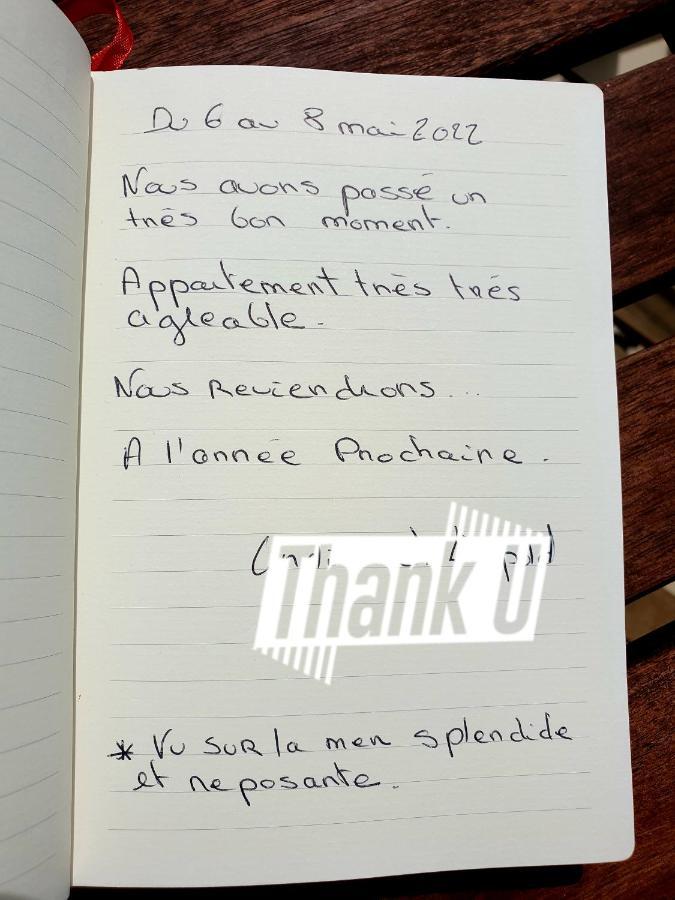 Du 6 au 8 mai 2022
Nous avons passé un
très bon moment.
Appartement très très
agréable.
Nous Reviendrons...
A l'année Prochaine.
Thank U
* Vu SUR la mer splendide
et reposante.